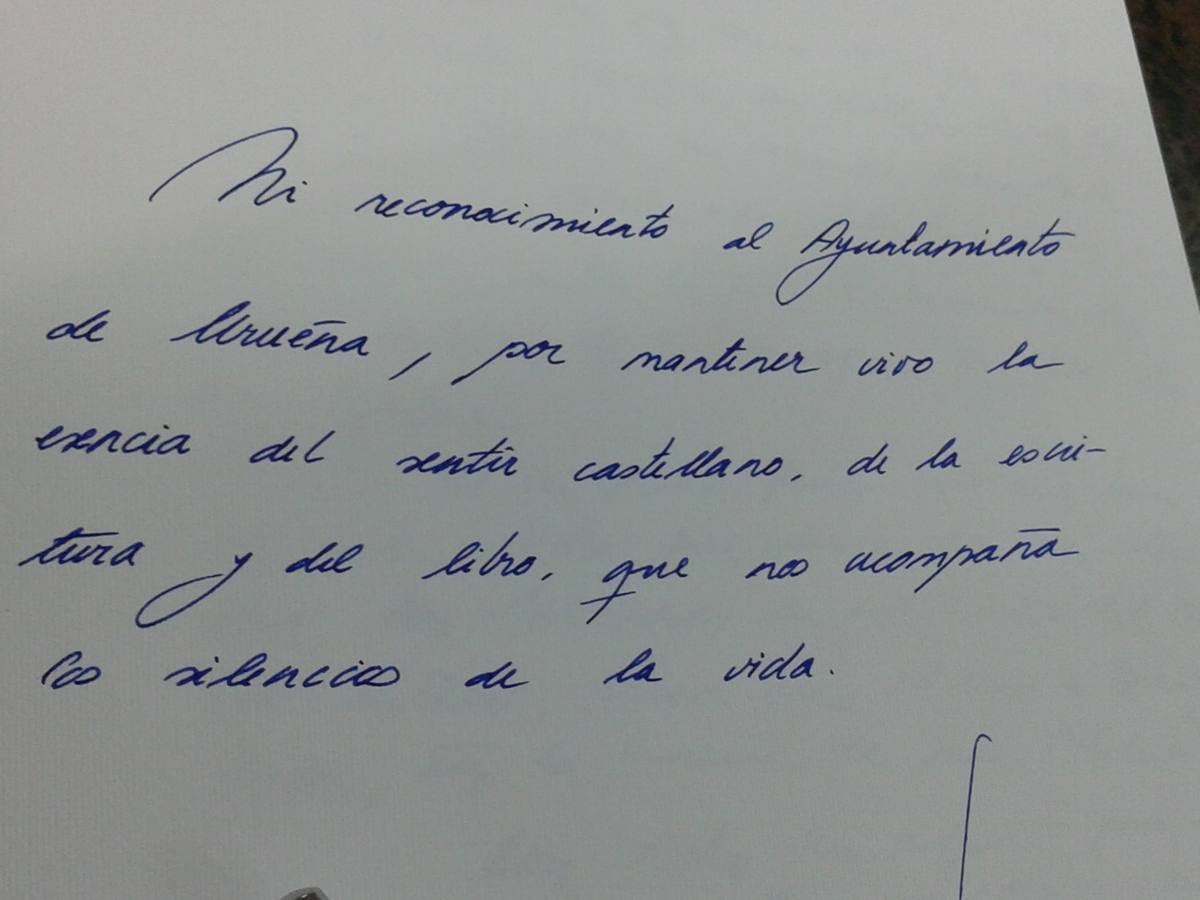 Mi reconocimiento al Ayuntamiento
de Urueña, por mantener vivo la
esencia del sentir castellano, de la escri-
tura y del libro, que nos acompaña
los silencios de la vida.